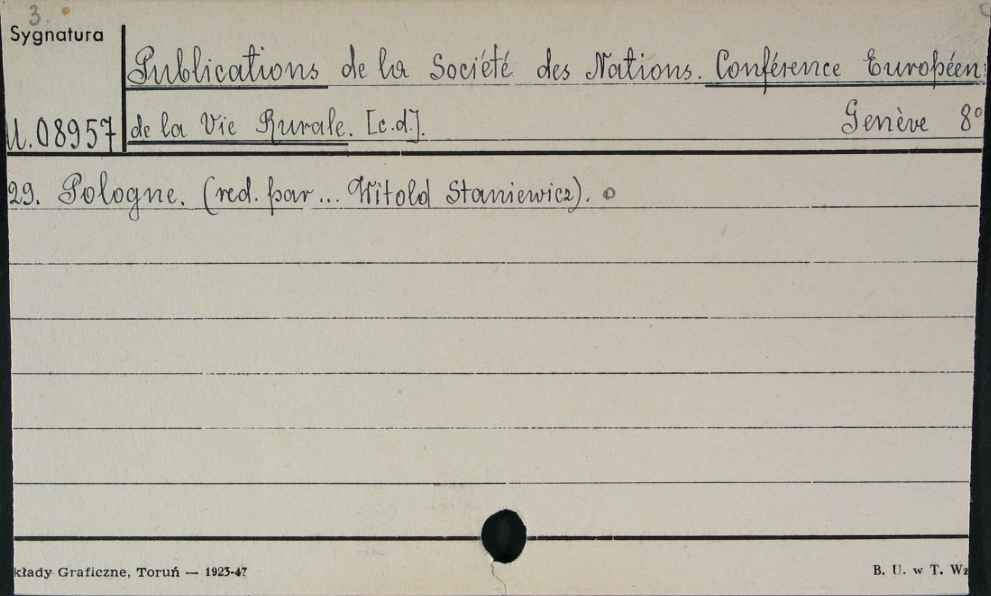 3.
Sygnatura
Publications de la Société des Nations. Conférence Européen
de la Vie Rurale. [c.d]. Genève 8°
U.08957
29. Pologne. (red. par ... Witold Staniewicz).
kłady Graficzne, Toruń — 1923-47
B. U. w T. Wz